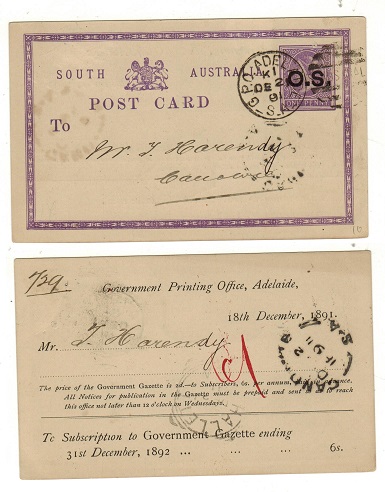 SOUTH AUSTRALIA
POST CARD
ONE PENNY
O.S.
G.P.O. ADEL
K1
DE
91
S.A
To
Mr. T. Harendy
18
729.
Government Printing Office, Adelaide,
18th December, 1891.
Mr. T. Harendy
The price of the Government Gazette is 2d.—to Subscribers, 6s. per annum,
All Notices for publication in the Gazette must be prepaid and sent to reach
this office not later than 12 o'clock on Wednesdays.
To Subscription to Government Gazette ending
31st December, 1892 ... ... ... 6s.